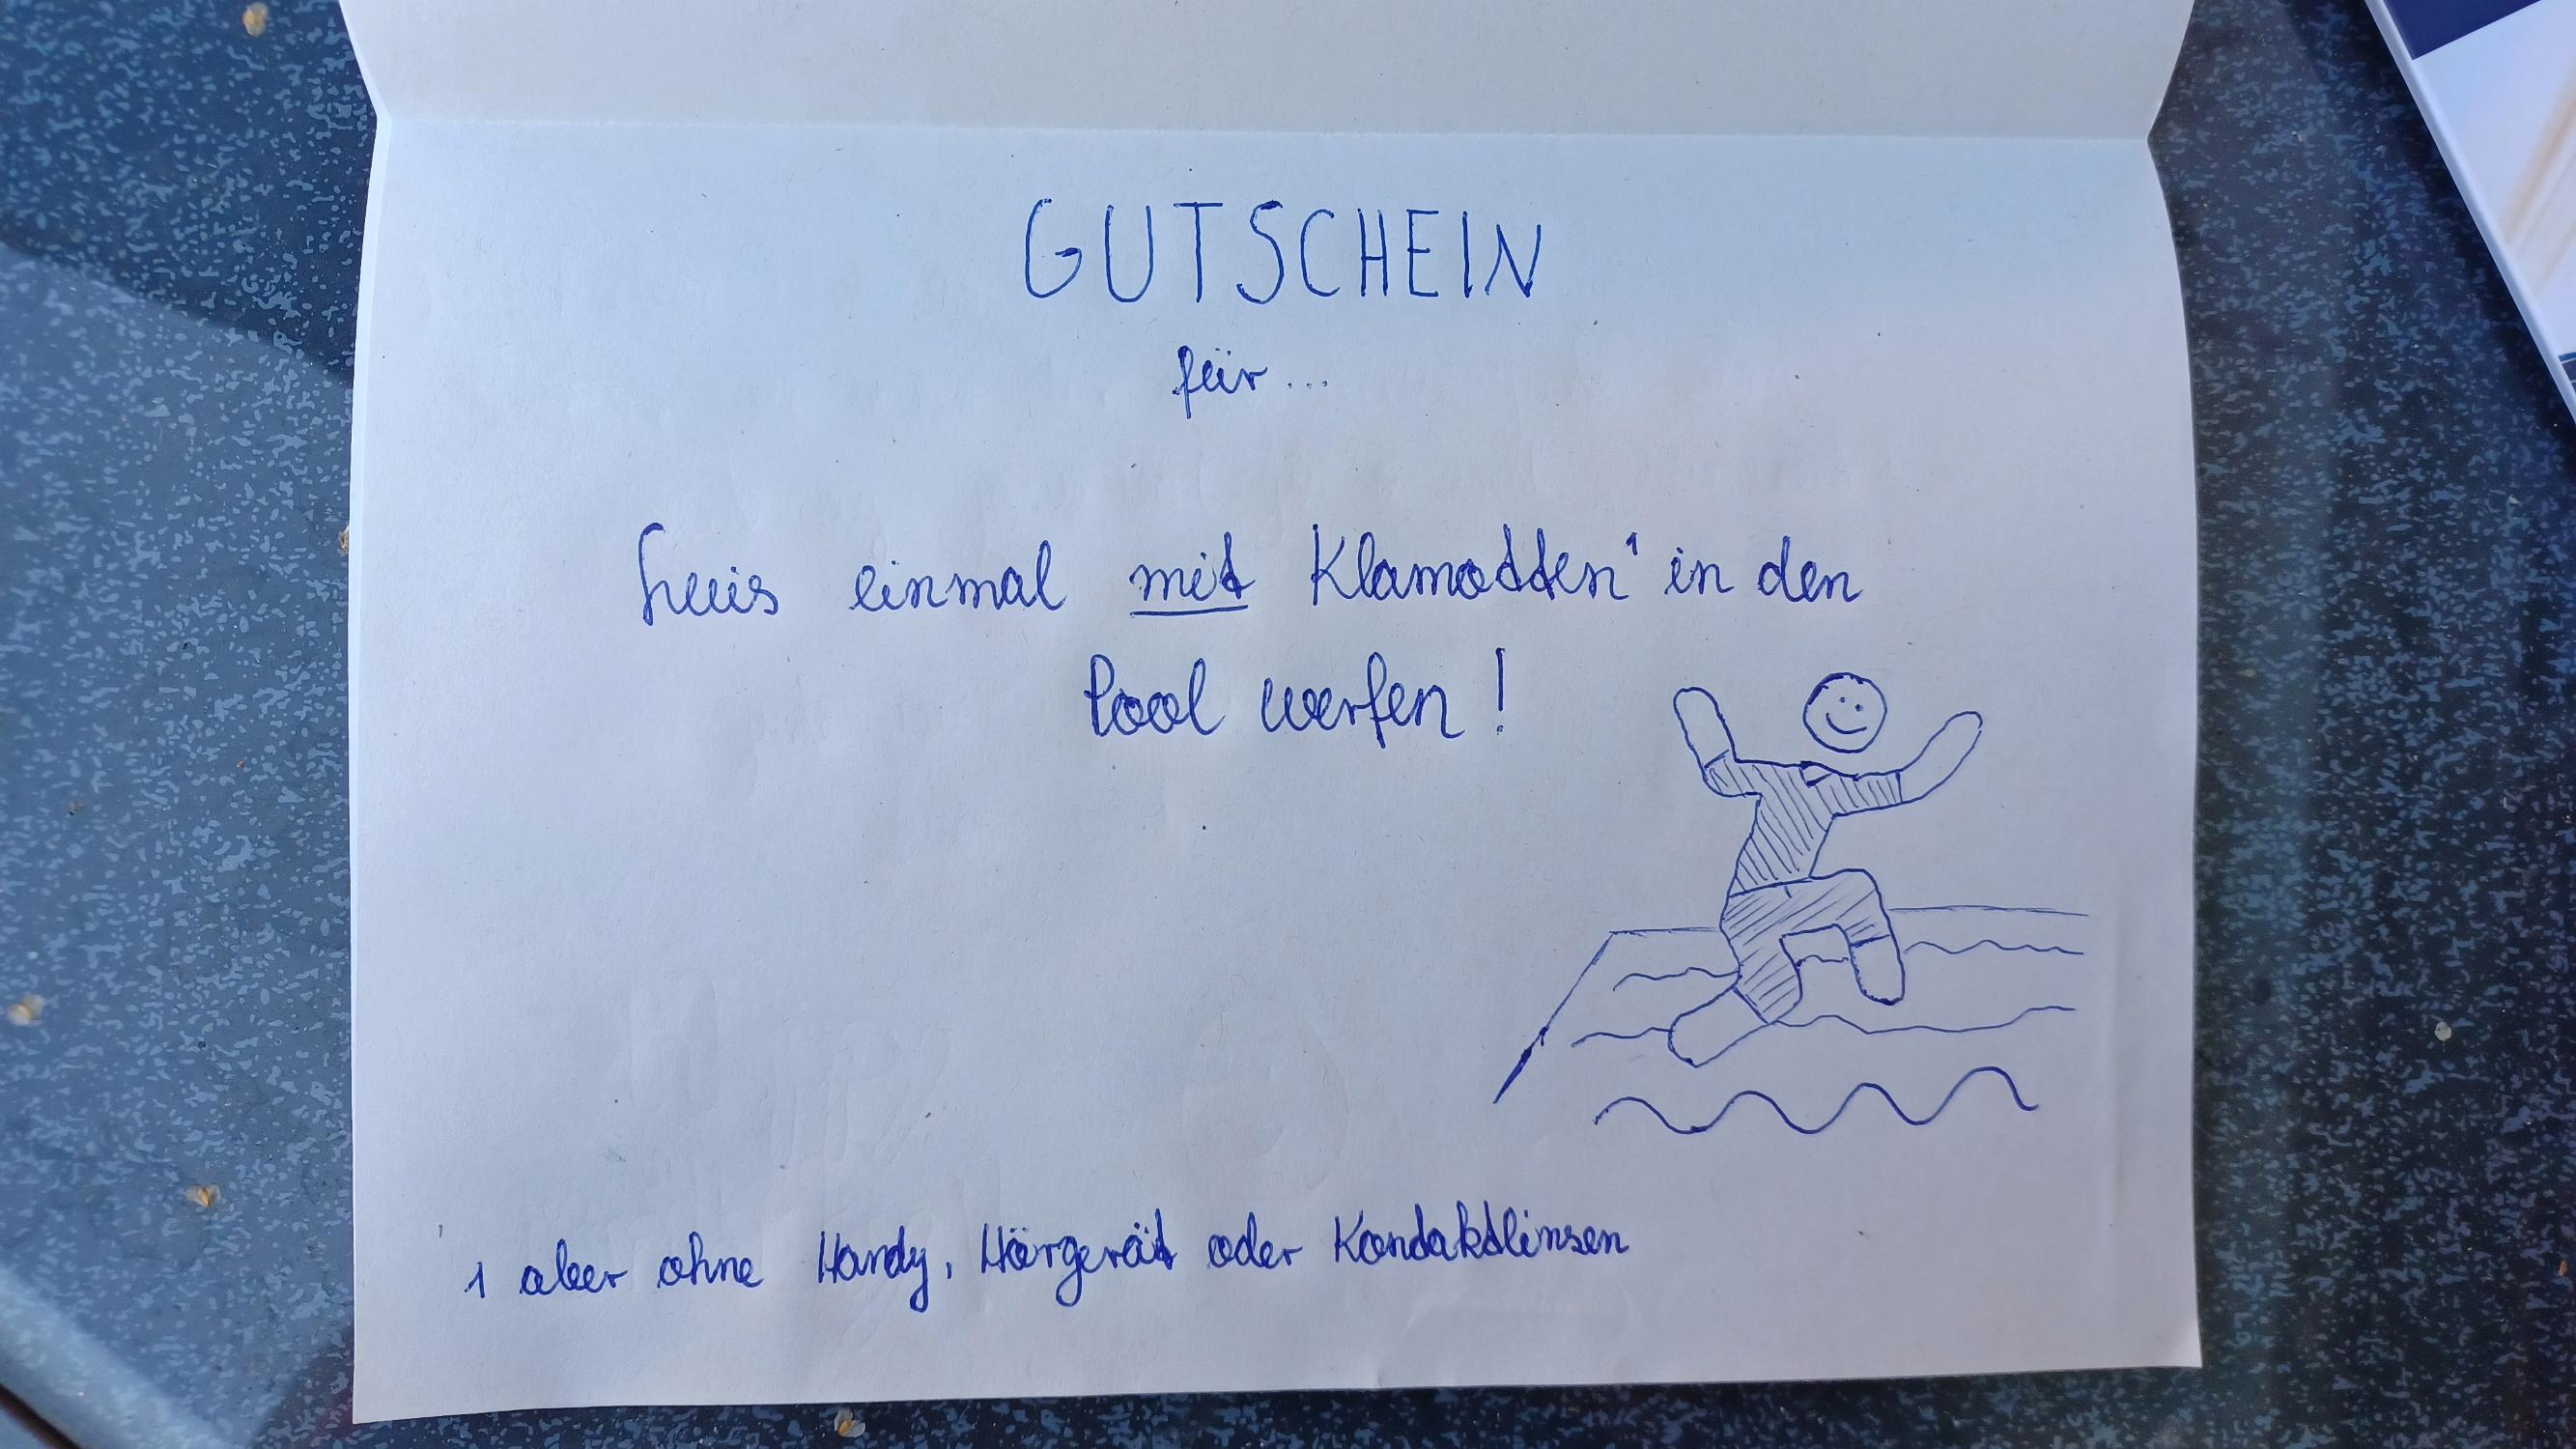 GUTSCHEIN
für...
Luis einmal mit Klamotten¹ in den
Pool werfen!
1 aber ohne Handy, Hörgerät oder Kontaktlinsen